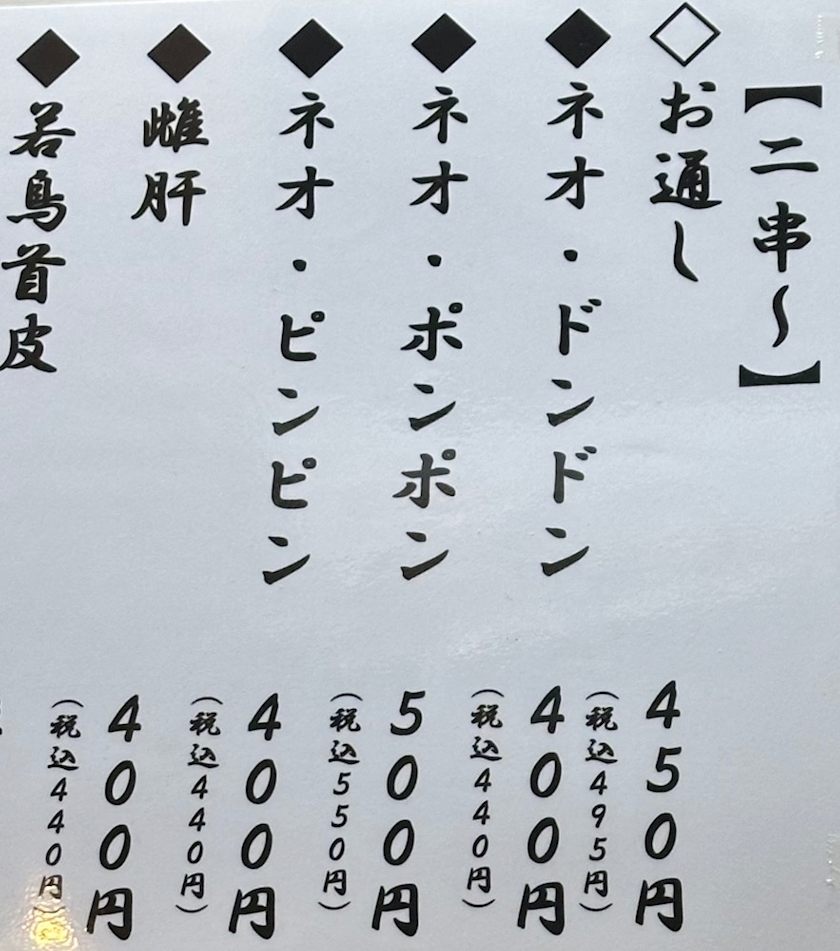 【二串〜】
◇お通し 450円
(税込495円)
◆ネオ・ドンドン 400円
(税込440円)
◆ネオ・ポンポン 500円
(税込550円)
◆ネオ・ピンピン 400円
(税込440円)
◆雌肝 400円
(税込440円)
◆若鳥首皮